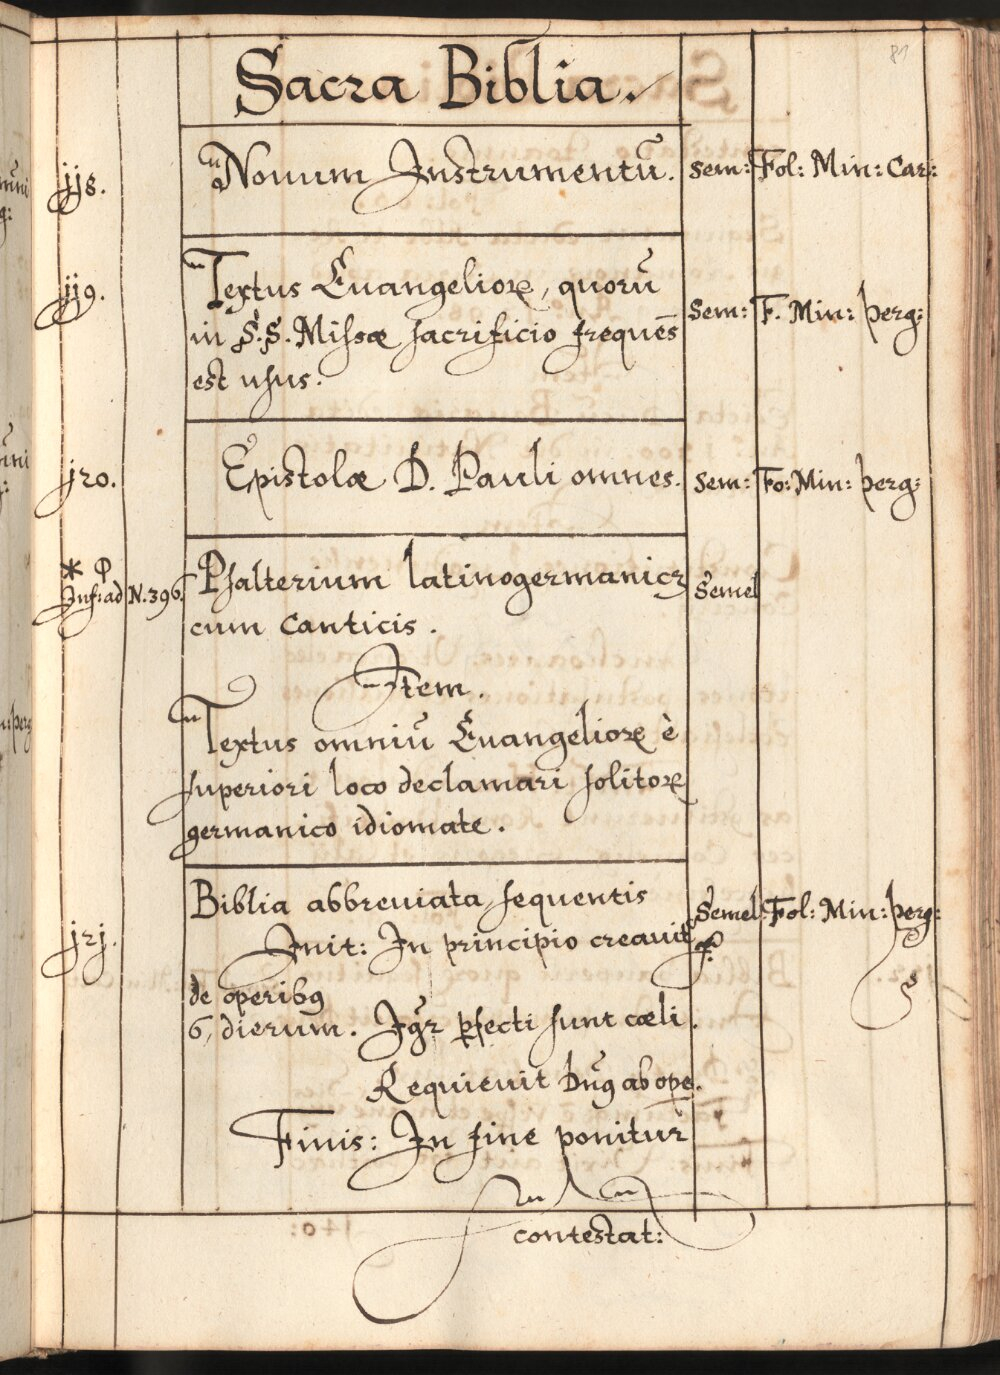 81
Sacra Biblia.
jj8. Nouum Instrumentũ. Sem: Fol: Min: Car:
jj9. Textus Euangelioꝝ, quorũ
in S.S. Missæ sacrificio frequẽs Sem: F. Min: perg:
est usus.
jzo. Epistolæ D. Pauli omnes. Sem: Fo: Min: perg:
* φ
Inf: ad N. 396. Psalterium latinogermanicũ Semel
cum Canticis.
Item.
Textus omniũ Euangelioꝝ è
superiori loco declamari solitoꝝ
germanico idiomate.
Biblia abbreviata sequentis Semel: Fol: Min: perg:
jzj. Init: In principio creauit
de operibꝰ
6, dierum. Igr̃ ꝑfecti sunt cœli.
Requieuit Dñꝰ ab ope.
Finis: In fine ponitur
contestat: